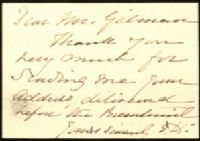 Dear Mr. Gilman
Thank you
very much for
sending me your
address delivered
before the